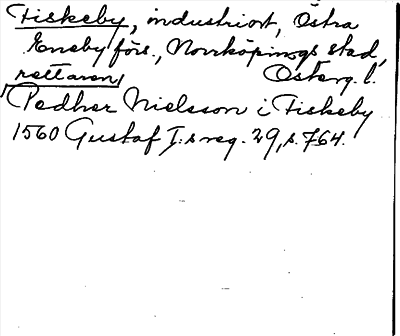 Fiskeby, industriort, Östra
Eneby förs., Norrköpings stad,
rettaren Österg. l.
Pedher Nielsson i Fiskeby
1560 Gustaf I:s reg. 29, s. 764.